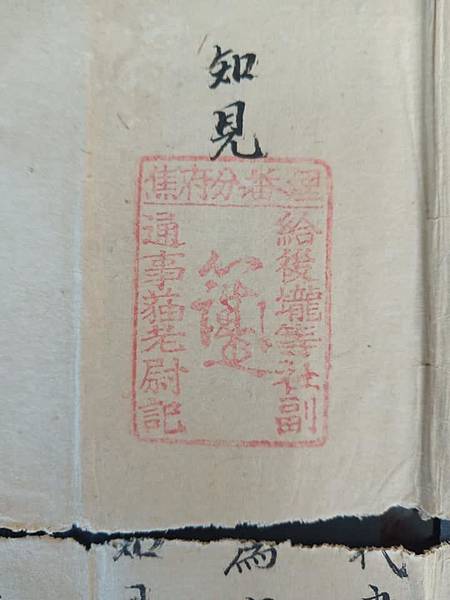 知見
理番分府焦
給後壠等社副
通事猫老尉記
為